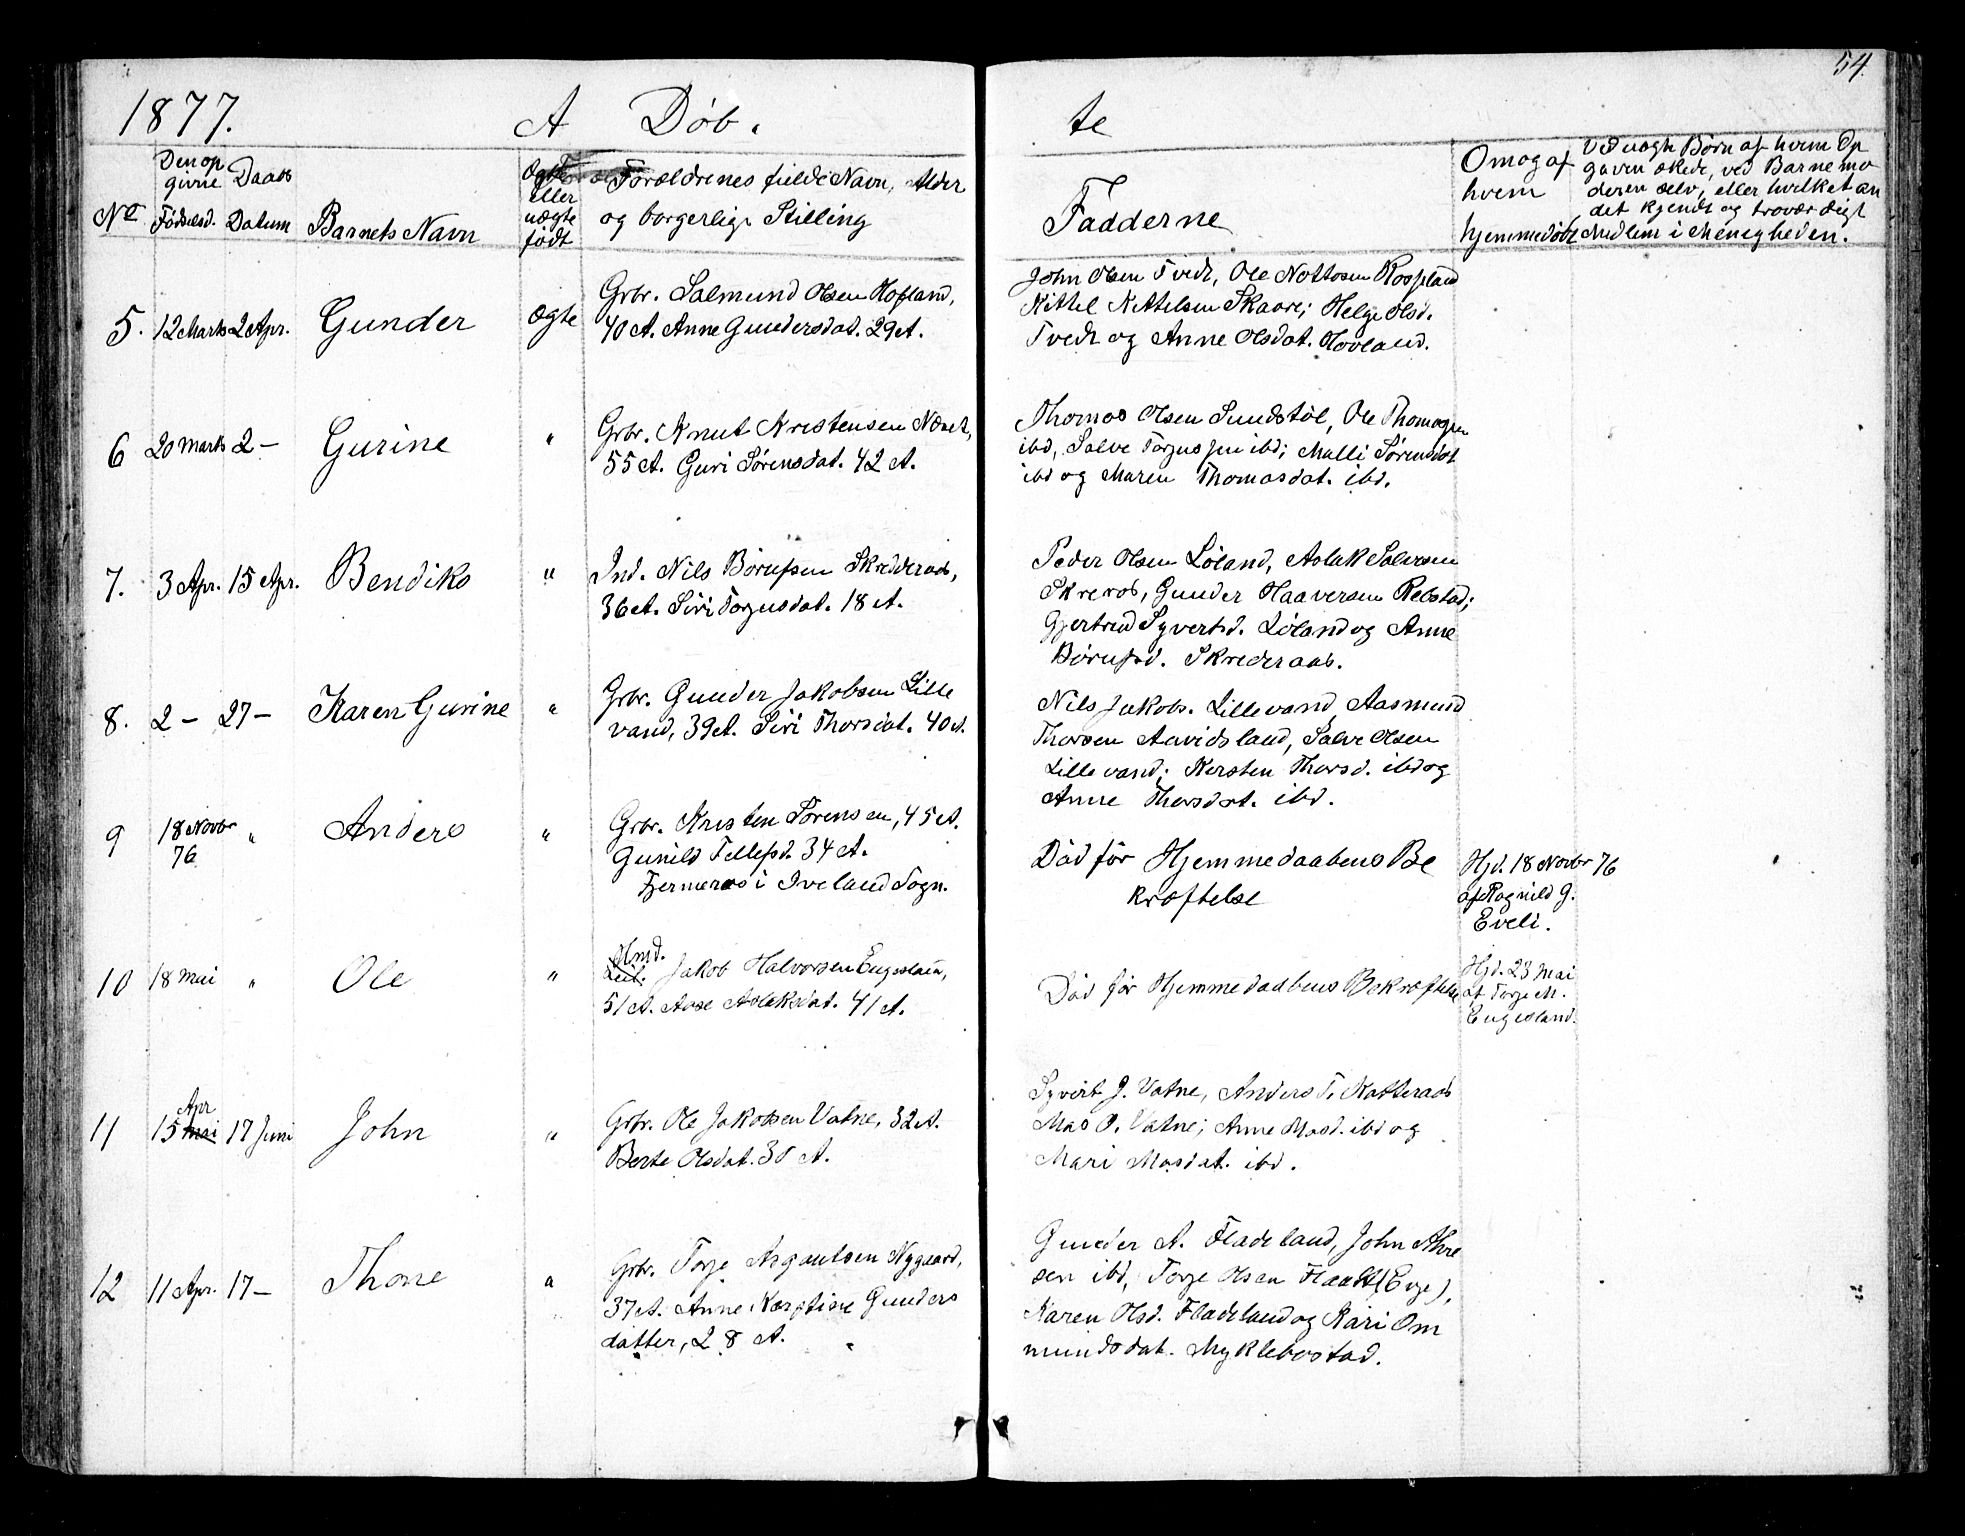 54.
1877. A Døb. te
No
Den op
givne
Fødselsd.
Daabs
Datum
Barnets Navn
Ægte
eller
uægte
født
Forældrenes fulde Navn, Alder
og borgerlige Stilling
Fadderne
Om og af
hvem
hjemmedøbt
Ved uægte Børn af hvem Op
gaven skede, ved Barnemo
deren selv, eller hvilket an
det kjendt og troværdigt
Medlem i Menigheden.
5. 12 Marts 2 Apr. Gunder Ægte
Grbr. Salmund Olsen Hofland,
40 A. Anne Gundersdat. 29 A.
John Olsen Tvedt, Ole Nottosen Rossland
Kittel Kittelsen Skaare; Helge Olsd.
Tvedt og Anne Olsdat. Hovland.
6 20 Marts 2 – Gurine "
Grbr. Knut Kristensen
55 A. Guri Sørensdat. 42 A.
Thomas Olsen Sundstøl, Ole Thomassen
ibd, Salve Torgussen ibd; Malli Sørensdat
ibd og Maren Thomasdat. ibd.
7. 3 Apr. 15 Apr. Bendiks "
Ind. Nils Børufsen Skredderaas,
36 A. Siri Torgusdat. 18 A.
Peder Olsen Løland, Aslak Salvesen
Skreros, Gunder Haaversen Rebstad;
Gjertrud Syvertsd. Løland og Anne
Børufsd. Skrederaas.
8. 2 – 27 – Karen Gurine "
Grbr. Gunder Jakobsen Lille
vand, 39 A. Siri Thorsdat. 40 A.
Nils Jakobs. Lillevand, Aasmund
Thorsen Aavidsland, Salve Olsen
Lillevand; Kersten Thorsd. ibd og
Anne Thorsdat. ibd.
9 18 Novbr
76 " Anders "
Grbr. Kristen Sørensen, 45 A.
Gunild Tellefsd. 34 A.
Fjermeros i Iveland Sogn.
Død før Hjemmedaabens Be
kræftelse
Hjd. 18 Novbr 76
af Ragnild G.
Eveli.
10 18 Mai " Ole "
Hmd.
Leil. Jakob Halvorsen Engesland,
51 A. Aase Aslaksdat. 41 A.
Død før Hjemmedaabens Bekræftelse
Hjd. 23 Mai
af Torje M.
Engesland.
11 15 Mai Apr 17 Juni John "
Grbr. Ole Jakobsen Vatne, 32 A.
Berte Olsdat. 30 A.
Syvert J. Vatne, Anders T. Katteraas
Mas O. Vatne; Anne Masd. ibd og
Mari Masdat. ibd.
12 11 Apr. 17 – Thone "
Grbr. Torje Asgautsen Nygaard,
37 A. Anne Kerstine Gunders
datter, 28 A.
Gunder A. Fladeland, John Ahre
sen ibd, Torje Olsen Flaatt (Evje),
Karen Olsd. Fladeland og Kari Om
mundsdat. Myklebostad.